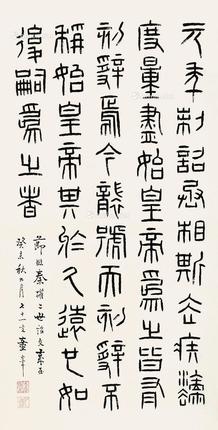 元年制詔丞相斯去疾灋
度量盡始皇帝為之皆有
刻辭焉今襲號而刻辭不
稱始皇帝其於久遠也如
後嗣為之者
節臨秦權二世詔文
癸未秋九月七十一叟童